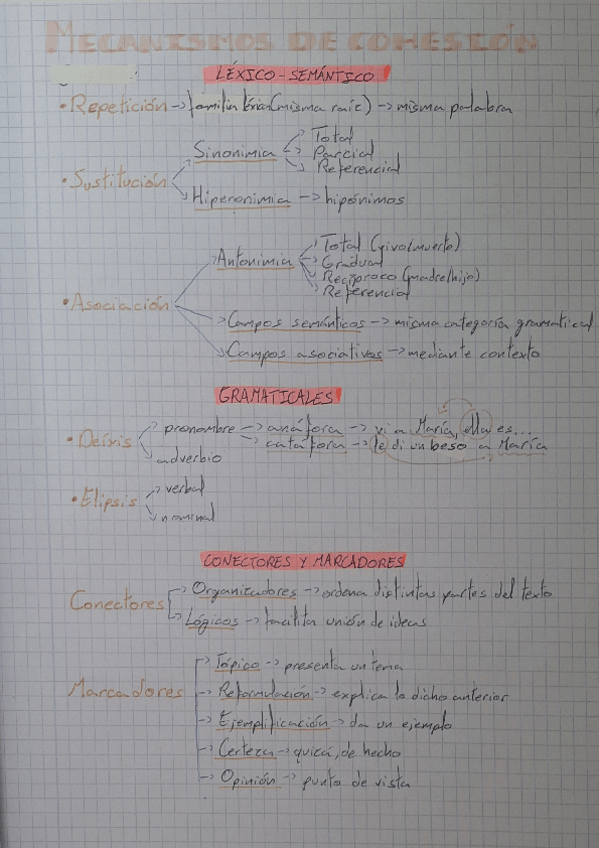 MECANISMOS DE COHESIÓN
LÉXICO-SEMÁNTICO
• Repetición -> familia léxica (misma raíz) -> misma palabra
Total
Sinonimia -> Parcial
Referencial
• Sustitución
Hiperonimia -> hipónimos
Total (vivo/muerto)
Antonimia -> Gradual
Recíproco (madre/hijo)
Referencial
• Asociación
-> Campos semánticos -> misma categoría gramatical
-> Campos asociativos -> mediante contexto
GRAMATICALES
pronombre -> anáfora -> vi a María, ella es...
• Deíxis -> catáfora -> le di un beso a María
adverbio
-> verbal
• Elipsis
nominal
CONECTORES Y MARCADORES
-> Organizadores -> ordena distintas partes del texto
Conectores
-> Lógicos -> facilita unión de ideas
-> Tópico -> presenta un tema
Marcadores -> Reformulación -> explica lo dicho anterior
-> Ejemplificación -> da un ejemplo
-> Certeza -> quizá, de hecho
-> Opinión -> punto de vista